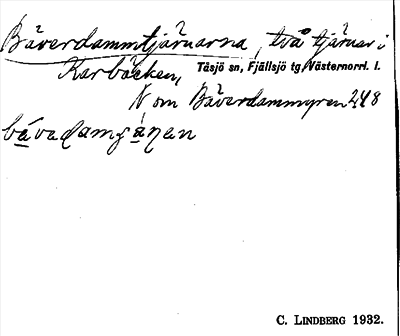 Bäverdammtjärnarna, två tjärnar i
Karbäcken, Tåsjö sn, Fjällsjö tg, Västernorrl. l.
N om Bäverdammyren 248
C. LINDBERG 1932.